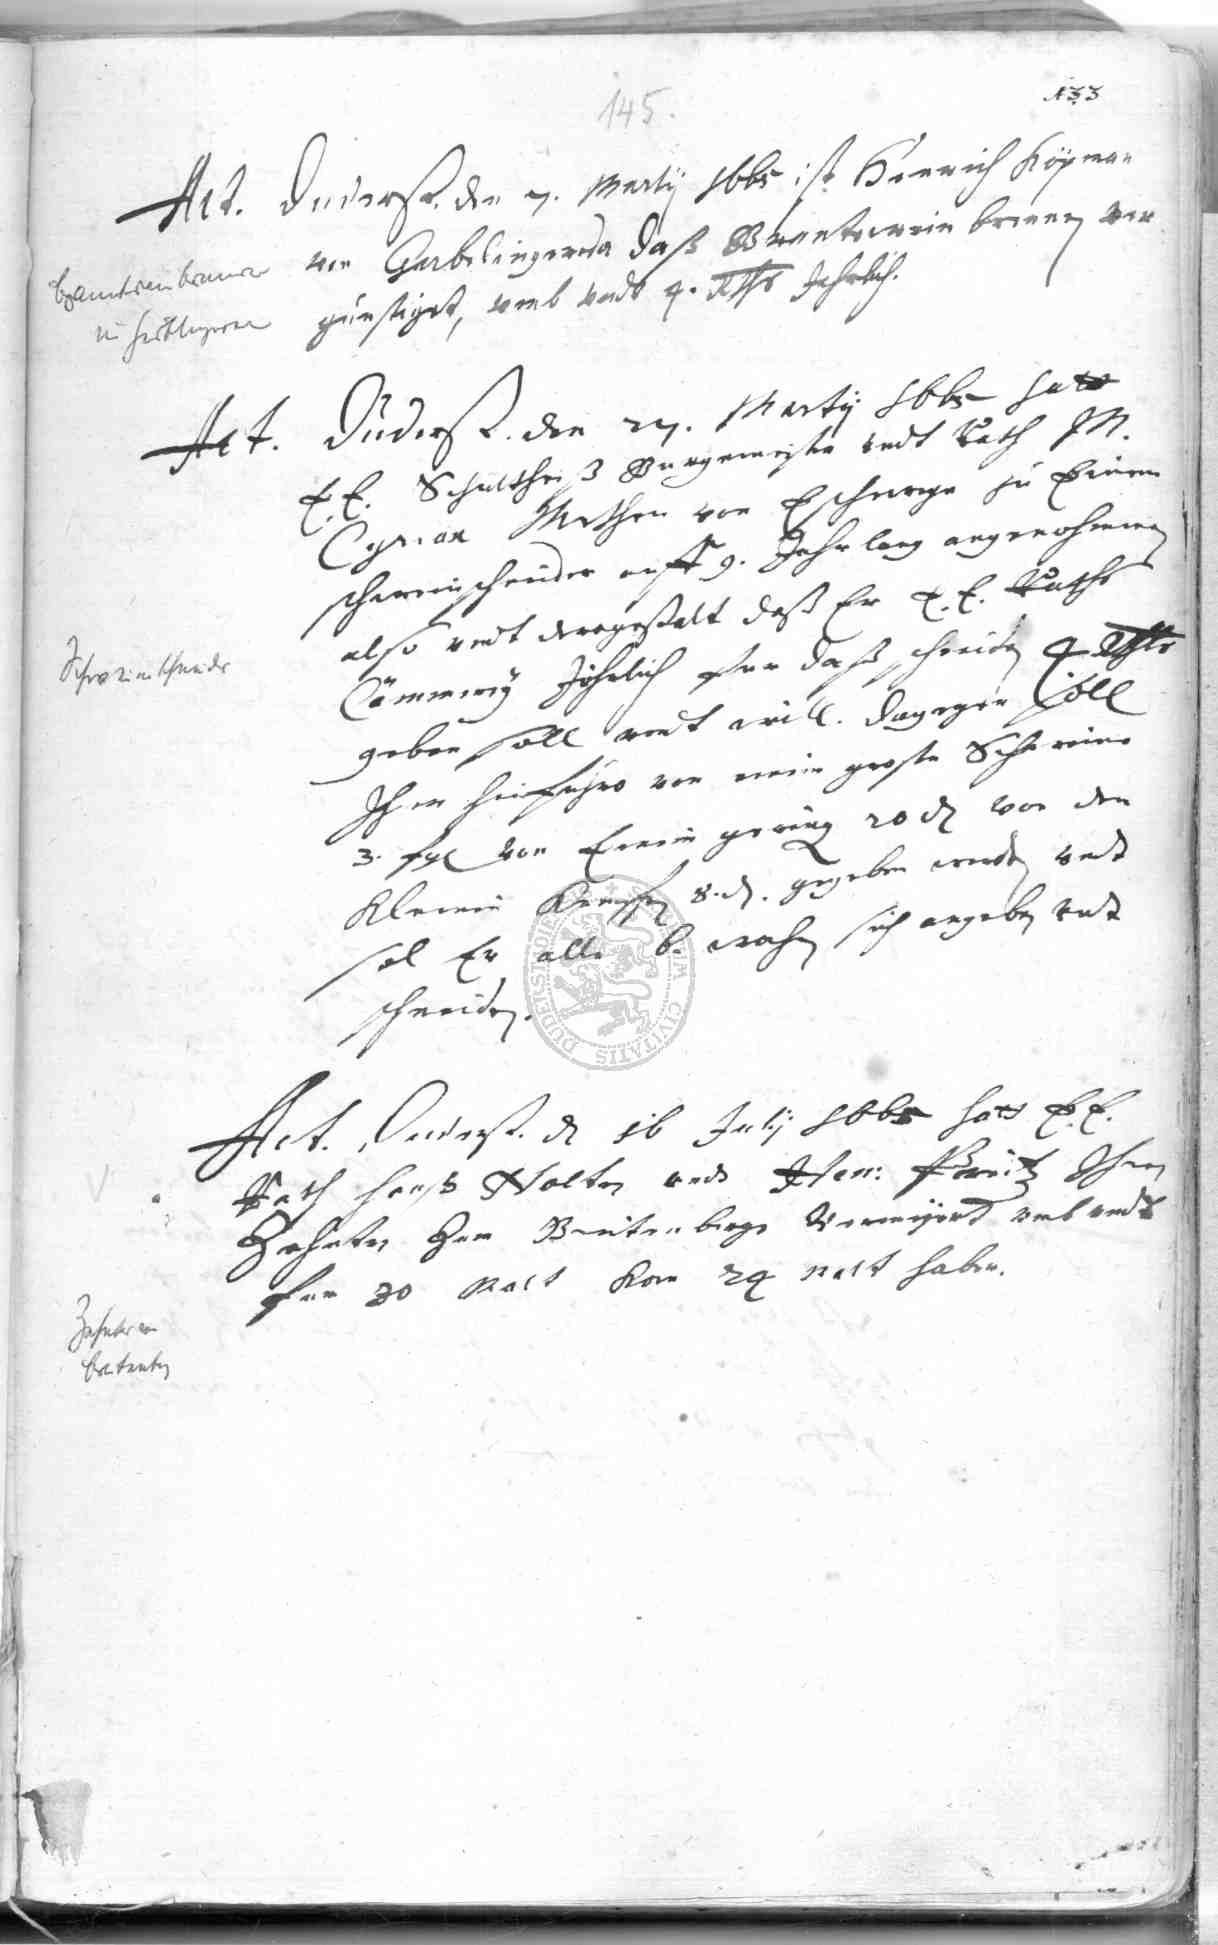 133
145.
Act. Duderst. den 7. Martij 1665 ist Henrich Köpman
von Gerbelingeroda daß Brantewein brennen ver
günstiget, umb undt 4. Rthlr Jehrlich.
Brantwein brennen
zu Gerblingeroda
Act. Duderst. den 27. Martij 1665 hatt
E. E. Schultheiß Burgemeister undt Rath M.
Cyriax Methen von Eschwege zu Einem
schweinschneider auff 9. Jahr lang angenohmen
also undt dergestalt daß Er E. E. Raths
Cämmerey Jährlich fur daß schneiden 4 Rthlr
geben soll undt will. dagegen soll
Ihm hinfuhro von einem grosten Schweine
3. von Einem gering 20 d von den
Kleinen 8. d. gegeben werden undt
sol Er alle 6. wochen sich angeben undt
schneiden.
Schweinschneider
Act. Duderst. d 16 July 1665 hatt E. E.
Rath Hanß Nolten undt Hen: Fritz Ihren
Zehnten Zum Breitenberge Vermeyert umb undt
fur 30 Malt Korn 24 Malt haber.
Zehnte von
breitenberg
SIGILLUM CIVITATIS DUDERSTADIENSIS